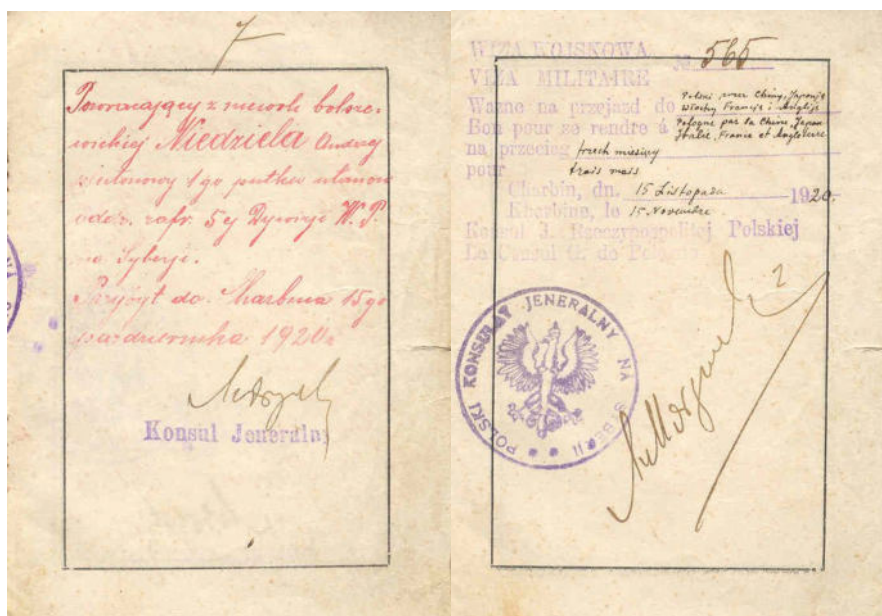 7
Powracający z niewoli bolsze-
wickiej Niedziela Andrzej
plutonowy 1go pułku ułanów
5ej Dywizji W. P.
na Syberji.
Przybył do Charbina 15go
października 1920r.
Konsul Jeneralny
WIZA WOJSKOWA № 565
VIZA MILITAIRE
Ważne na przejazd do Polski przez Chiny, Japonję
Włochy Francję i Anglję
Bon pour se rendre á Pologne par la Chine, Japon
Italie, France et Angleterre
na przeciąg trzech miesięcy
pour trois mois
Charbin, dn. 15 Listopada 1920.
Kharbine, le 15 Novembre
Konsul J. Rzeczypospolitej Polskiej
Le Consul G. de Pologne
POLSKI KONSULAT JENERALNY NA SYBERJI